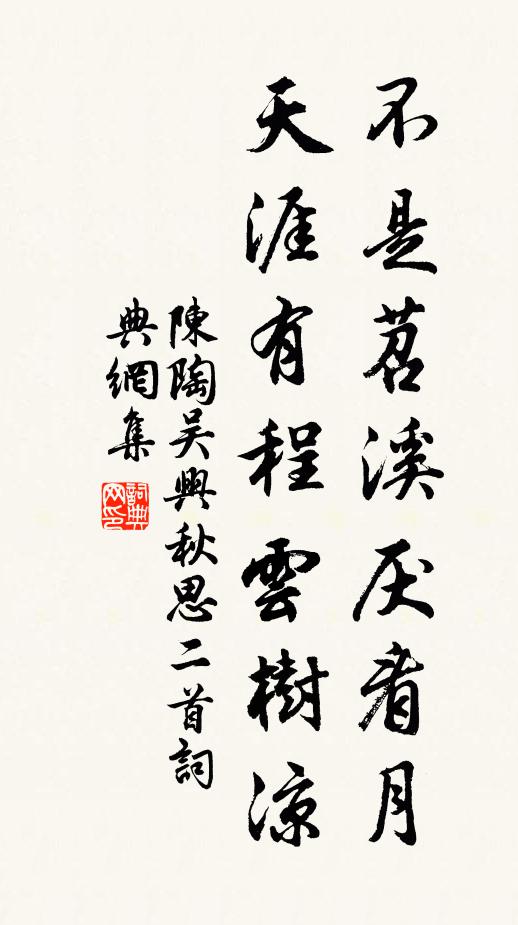 不是苕溪厌看月
天涯有程雲樹凉
陳陶吴興秋思二首詞
典網集
詞典网印